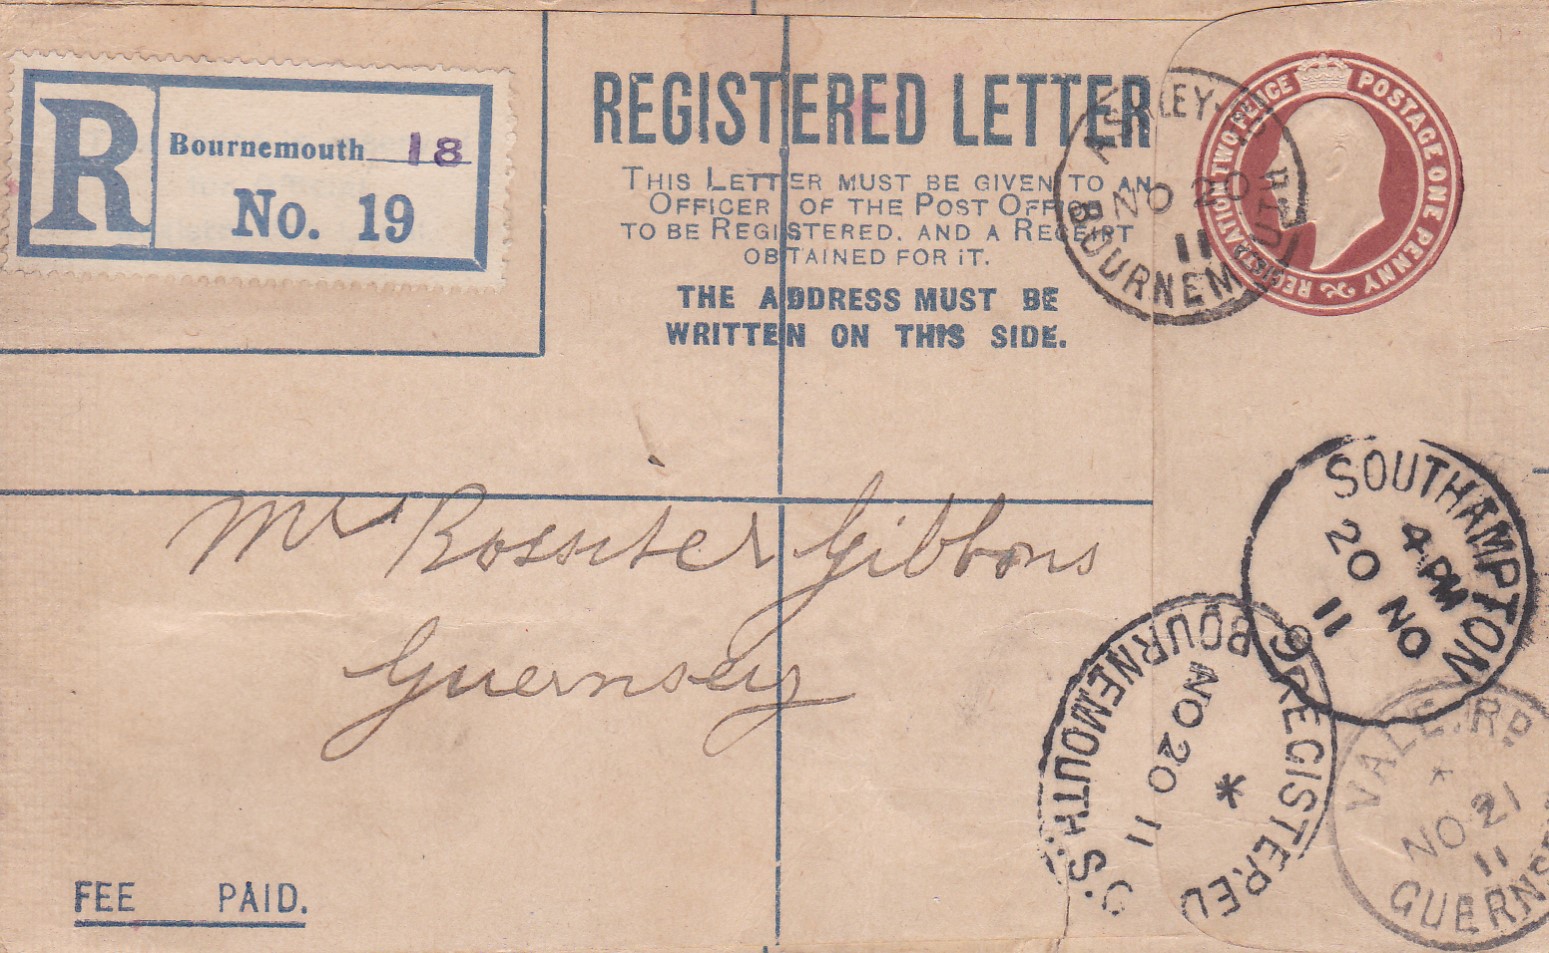 R
Bournemouth 18
No. 19
REGISTERED LETTER
THIS LETTER MUST BE GIVEN TO AN
OFFICER OF THE POST OFFICE
TO BE REGISTERED, AND A RECEIPT
OBTAINED FOR IT.
THE ADDRESS MUST BE
WRITTEN ON THIS SIDE.
POSTAGE ONE PENNY
REGISTRATION TWO PENCE
NO 20
11
BOURNEM
Mr Rossiter Gibbons
Guernsey
SOUTHAMPTON
4 PM
20 NO
11
9
REGISTERED
NO 20 11
*
BOURNEMOUTH. S.O
VALE. RP
*
NO 21
11
GUERNSE
FEE PAID.